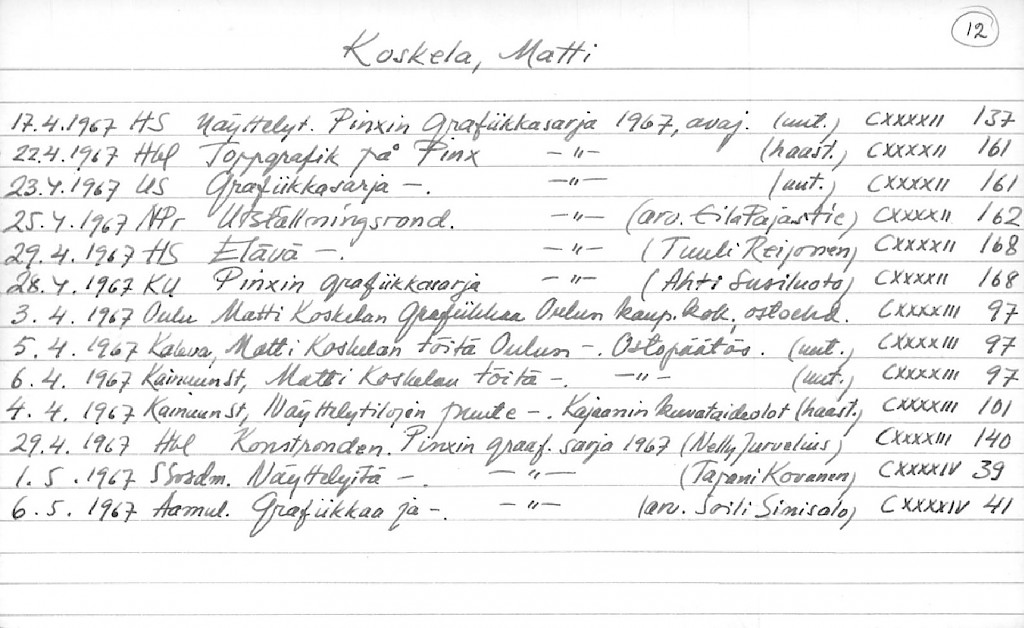 12
Koskela, Matti
17.4.1967 HS Näyttelyt. Pinxin Grafiikkasarja 1967, avaj. (uut.) CXXXXII 137
22.4.1967 Hbl Toppgrafik på Pinx -"- (haast.) CXXXXII 161
23.4.1967 US Grafiikkasarja -. -"- (uut.) CXXXXII 161
25.4.1967 NPr Utställningsrond. -"- (arv. Eila Pajastie) CXXXXII 162
29.4.1967 HS Elävä -. -"- (Tuuli Reijonen) CXXXXII 168
28.4.1967 KU Pinxin grafiikkasarja -"- (Ahti Susiluoto) CXXXXII 168
3.4.1967 Oulu Matti Koskelan Grafiikkaa Oulun kaup. kok. ostoehd. CXXXXIII 97
5.4.1967 Kaleva, Matti Koskelan töitä Oulun -. Ostopäätös. (uut.) CXXXXIII 97
6.4.1967 KainuunSt, Matti Koskelan töitä -. -"- (uut.) CXXXXIII 97
4.4.1967 KainuunSt, Näyttelytilojen puute -. Kajaanin kuvataideolot (haast.) CXXXXIII 101
29.4.1967 Hbl Konstronden. Pinxin graaf. sarja 1967 (Nelly Jurvelius) CXXXXIII 140
1.5.1967 SSosdm. Näyttelyitä -. -"- (Tapani Kovanen) CXXXXIV 39
6.5.1967 Aamul. Grafiikkaa ja -. -"- (arv. Soili Sinisalo) CXXXXIV 41